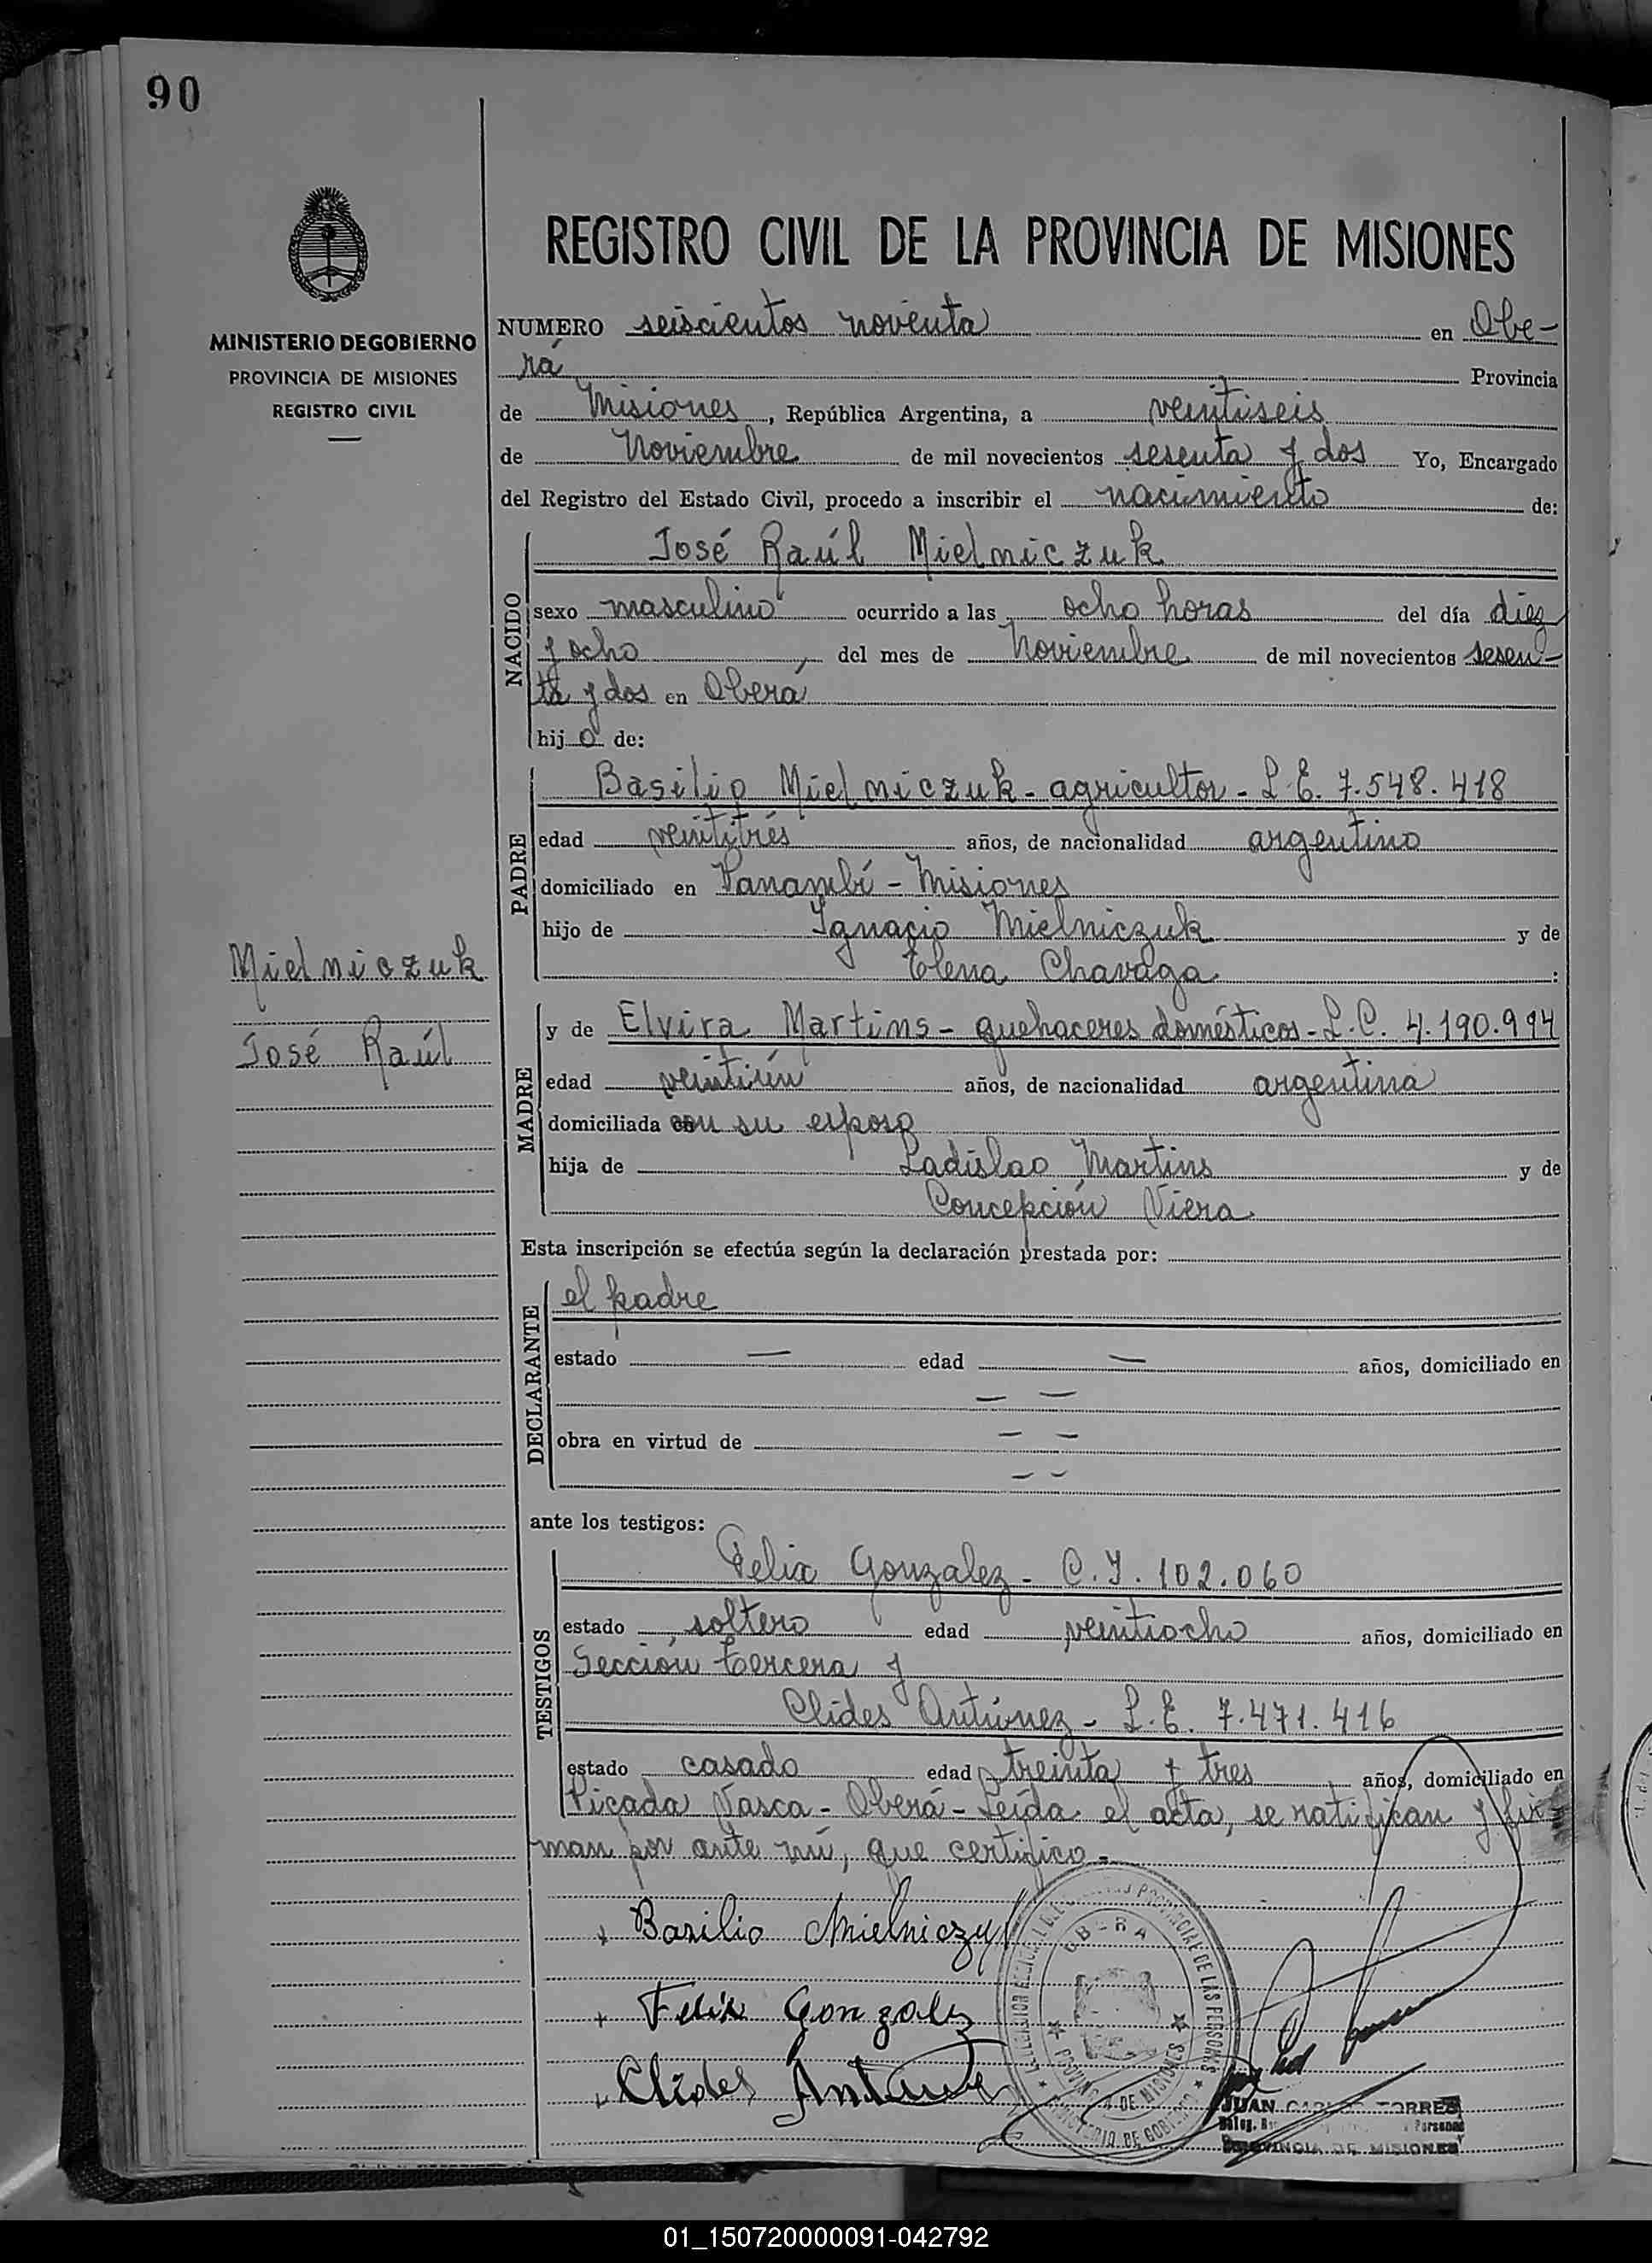 90
REGISTRO CIVIL DE LA PROVINCIA DE MISIONES
MINISTERIO DE GOBIERNO
PROVINCIA DE MISIONES
REGISTRO CIVIL
NUMERO seiscientos noventa en Obe-
rá Provincia
de Misiones, República Argentina, a veintiseis
de Noviembre de mil novecientos sesenta y dos Yo, Encargado
del Registro del Estado Civil, procedo a inscribir el nacimiento de:
NACIDO
José Raúl Mielniczuk
sexo masculino ocurrido a las ocho horas del día diez
y ocho, del mes de Noviembre de mil novecientos sesen-
ta y dos en Oberá
hijo de:
PADRE
Basilio Mielniczuk - agricultor - L.E. 7.548.418
edad veintitrés años, de nacionalidad argentino
domiciliado en Panambí - Misiones
hijo de Ignacio Mielniczuk y de
Elena Chavaga :
Mielniczuk
José Raúl
MADRE
y de Elvira Martins - quehaceres domésticos - L.C. 4.190.994
edad veintiún años, de nacionalidad argentina
domiciliada con su esposo
hija de Ladislao Martins y de
Concepción Viera
Esta inscripción se efectúa según la declaración prestada por:
DECLARANTE
el padre
estado — edad — años, domiciliado en
— —
obra en virtud de — —
— —
ante los testigos:
TESTIGOS
Felix Gonzalez - C.I. 102.060
estado soltero edad veintiocho años, domiciliado en
Sección tercera y
Clides Antúnez - L.E. 7.471.416
estado casado edad treinta y tres años, domiciliado en
Picada Vasca - Oberá - Leída el acta, se ratifican y fir-
man por ante mí, que certifico -
+ Basilio Mielniczuk
+ Felix Gonzalez
+ Clides Antunez
PROVINCIAL DE LAS PERSONAS
OBERA
PROVINCIA DE MISIONES
MINISTERIO DE GOBIERNO
JUAN CARLOS TORRES
PROVINCIA DE MISIONES
01_150720000091-042792